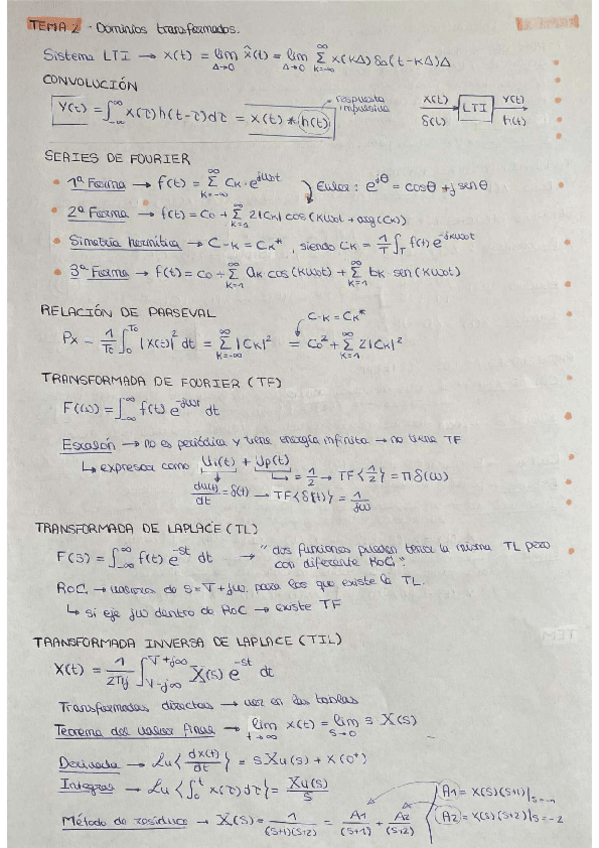 TEMA 2 - Dominios transformados.
Sistema LTI → x(t) = lim_{Δ→0} x̂(t) = lim_{Δ→0} Σ_{k=-∞}^{∞} x(kΔ) δΔ(t-kΔ)Δ
CONVOLUCIÓN
respuesta impulsiva
Y(t) = ∫_{-∞}^{∞} x(τ) h(t-τ) dτ = x(t) * h(t)
x(t) → LTI → Y(t)
δ(t) h(t)
SERIES DE FOURIER
• 1ª Forma → f(t) = Σ_{k=-∞}^{∞} Ck · e^{jkω0t} Euler: e^{jθ} = cosθ + j senθ
• 2ª Forma → f(t) = C0 + Σ_{k=1}^{∞} 2|Ck| cos(kω0t + arg(Ck))
• Simetría hermítica → C-k = Ck*, siendo Ck = 1/T ∫_T f(t) e^{-jkω0t}
• 3ª Forma → f(t) = C0 + Σ_{k=1}^{∞} ak cos(kω0t) + Σ_{k=1}^{∞} bk · sen(kω0t)
RELACIÓN DE PARSEVAL
C-k = Ck*
Px - 1/T0 ∫_0^{T0} |x(t)|² dt = Σ_{k=-∞}^{∞} |Ck|² = C0² + Σ_{k=1}^{∞} 2|Ck|²
TRANSFORMADA DE FOURIER (TF)
F(ω) = ∫_{-∞}^{∞} f(t) e^{-jωt} dt
Escalón → no es periódica y tiene energía infinita → no tiene TF
↳ expresar como Ui(t) + Up(t)
↳ = 1/2 → TF{1/2} = πδ(ω)
du(t)/dt = δ(t) → TF{δ(t)} = 1/jω
TRANSFORMADA DE LAPLACE (TL)
F(S) = ∫_{-∞}^{∞} f(t) e^{-st} dt → "dos funciones pueden tener la misma TL pero
con diferente RoC."
RoC → valores de S = ∇ + jω para los que existe la TL.
↳ si eje jω dentro de RoC → existe TF
TRANSFORMADA INVERSA DE LAPLACE (TIL)
X(t) = 1/2πj ∫_{∇-j∞}^{∇+j∞} X(s) e^{-st} dt
Transformadas directas → ver en las tablas
Teorema del valor final → lim_{t→∞} x(t) = lim_{s→0} s X(s)
Derivada → Lu{dx(t)/dt} = s Xu(s) + x(0⁺)
Integral → Lu{∫_0^t x(τ) dτ} = Xu(s)/s
A1 = X(s)(s+1)|_{s=-1}
Método de residuos → X(s) = 1/(s+1)(s+2) = A1/(s+1) + A2/(s+2)
A2 = X(s)(s+2)|_{s=-2}